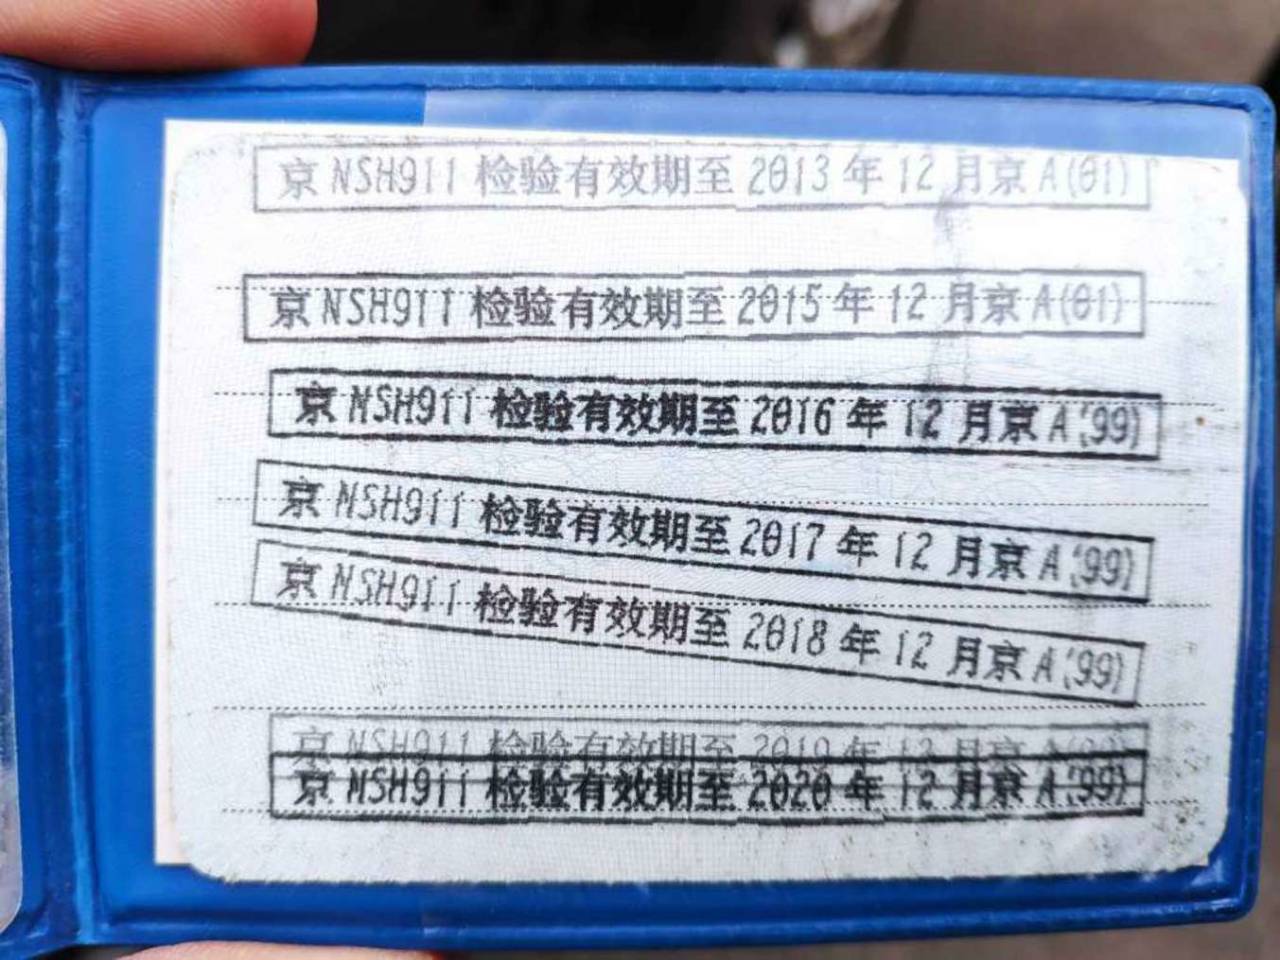 京NSH911 检验有效期至 2013 年 12 月京 A(01)
京NSH911 检验有效期至 2015 年 12 月京 A(01)
京NSH911 检验有效期至 2016 年 12 月京 A(99)
京NSH911 检验有效期至 2017 年 12 月京 A(99)
京NSH911 检验有效期至 2018 年 12 月京 A(99)
京NSH911 检验有效期至 2019 年 12 月京
京NSH911 检验有效期至 2020 年 12 月京 A(99)